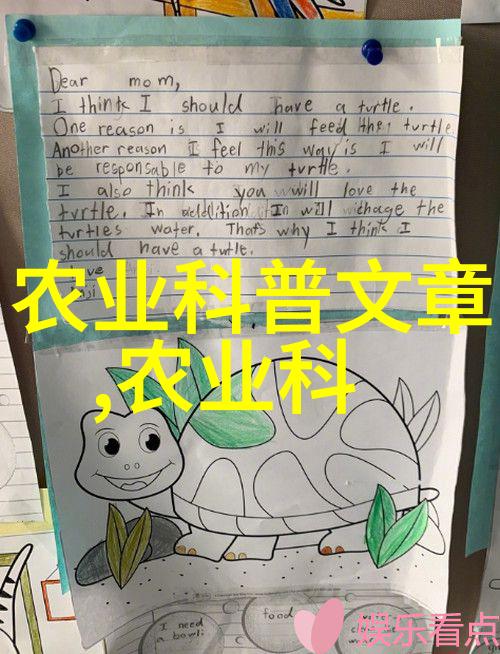 Dear mom,
I think I should have a turtle.
One reason is I will feed the turtle.
Another reason I feel this way is I will
be responsable to my turtle.
I also think you will love the
turtle. In addition I will chage the
turtles water. That's why I think I
should have a turtle.
农业科普文章
,农业科
I need
a bowl
food
娱乐看点